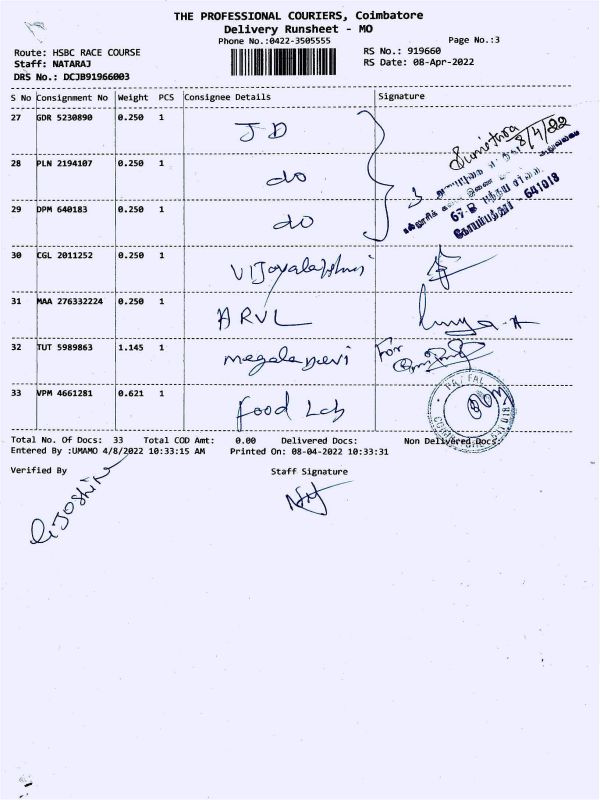 THE PROFESSIONAL COURIERS, Coimbatore
Delivery Runsheet - MO
Phone No.:0422-3505555
Page No.:3
Route: HSBC RACE COURSE
RS No.: 919660
Staff: NATARAJ
RS Date: 08-Apr-2022
DRS No.: DCJB91966003
S No Consignment No Weight PCS Consignee Details Signature
27 GDR 5230890 0.250 1 JD
8/4/22
28 PLN 2194107 0.250 1 do
29 DPM 640183 0.250 1 do
67-B
கோயம்புத்தூர் - 641018
30 CGL 2011252 0.250 1 Vijayalakshmi
31 MAA 276332224 0.250 1 ARVL
32 TUT 5989863 1.145 1 megala Devi For
33 VPM 4661281 0.621 1 food Lab
Total No. Of Docs: 33 Total COD Amt: 0.00 Delivered Docs: Non Delivered Docs:
Entered By :UMAMO 4/8/2022 10:33:15 AM Printed On: 08-04-2022 10:33:31
Verified By Staff Signature